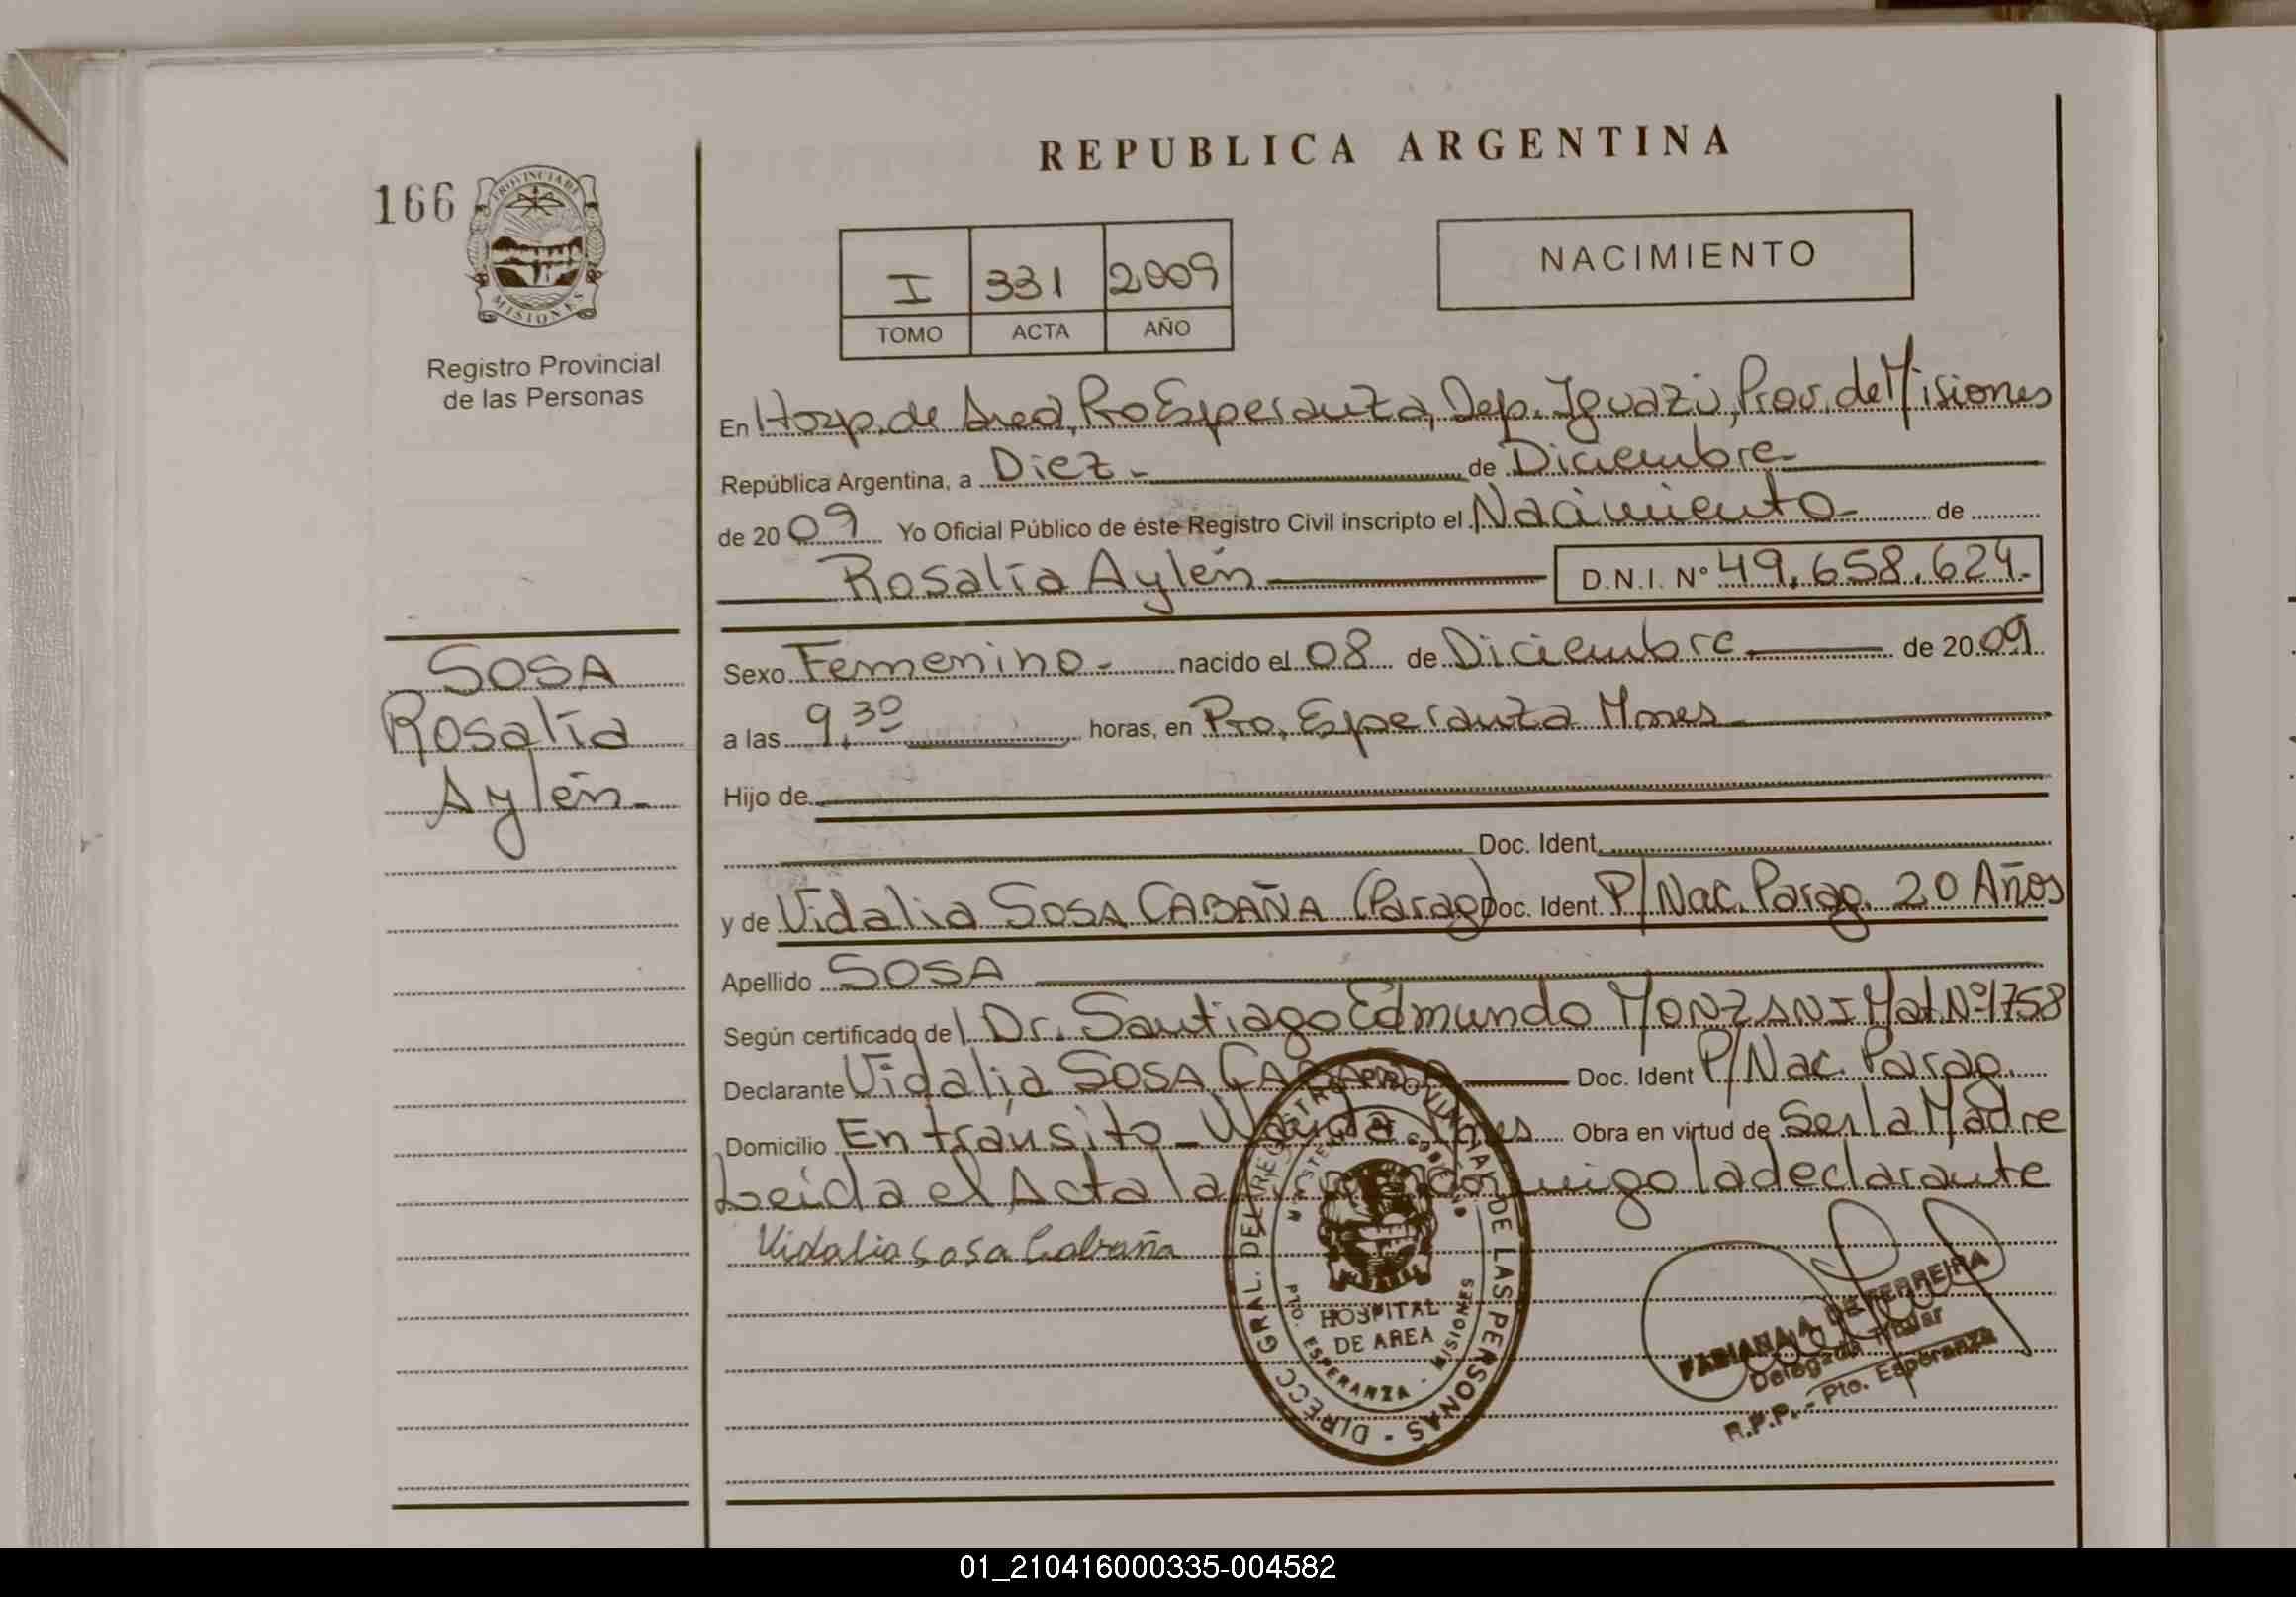 REPUBLICA ARGENTINA
166
PROVINCIA DE
MISIONES
Registro Provincial
de las Personas
I 331 2009
TOMO ACTA AÑO
NACIMIENTO
En Hosp. de Area, Pto Esperanza, Dep. Iguazú, Prov. de Misiones
República Argentina, a Diez.- de Diciembre-
de 2009 Yo Oficial Público de éste Registro Civil inscripto el Nacimiento- de
Rosalía Aylén D.N.I. Nº 49.658.624.-
SOSA
Rosalía
Aylén.-
Sexo Femenino.- nacido el 08 de Diciembre de 2009
a las 9,30 horas, en Pto. Esperanza Mnes-
Hijo de
Doc. Ident.
y de Vidalia SOSA CABAÑA (Parag) Doc. Ident. P/Nac. Parag. 20 Años
Apellido SOSA
Según certificado del Dr. Santiago Edmundo MONZANI Mat Nº 1758
Declarante Vidalia SOSA CABAÑA Doc. Ident P/Nac. Parag.
Domicilio En tránsito - Wanda Mnes Obra en virtud de Ser la Madre
Leída el Acta la firmando conmigo la declarante
Vidalia Sosa Cabaña
DIRECC GRAL. DEL REGISTRO PROVINCIAL DE LAS PERSONAS -
MINISTERIO DE GOBIERNO
HOSPITAL
DE AREA
PTO. ESPERANZA - MISIONES
FABIANA A. DE FERREIRA
Delegada Titular
R.P.P. - Pto. Esperanza
01_210416000335-004582